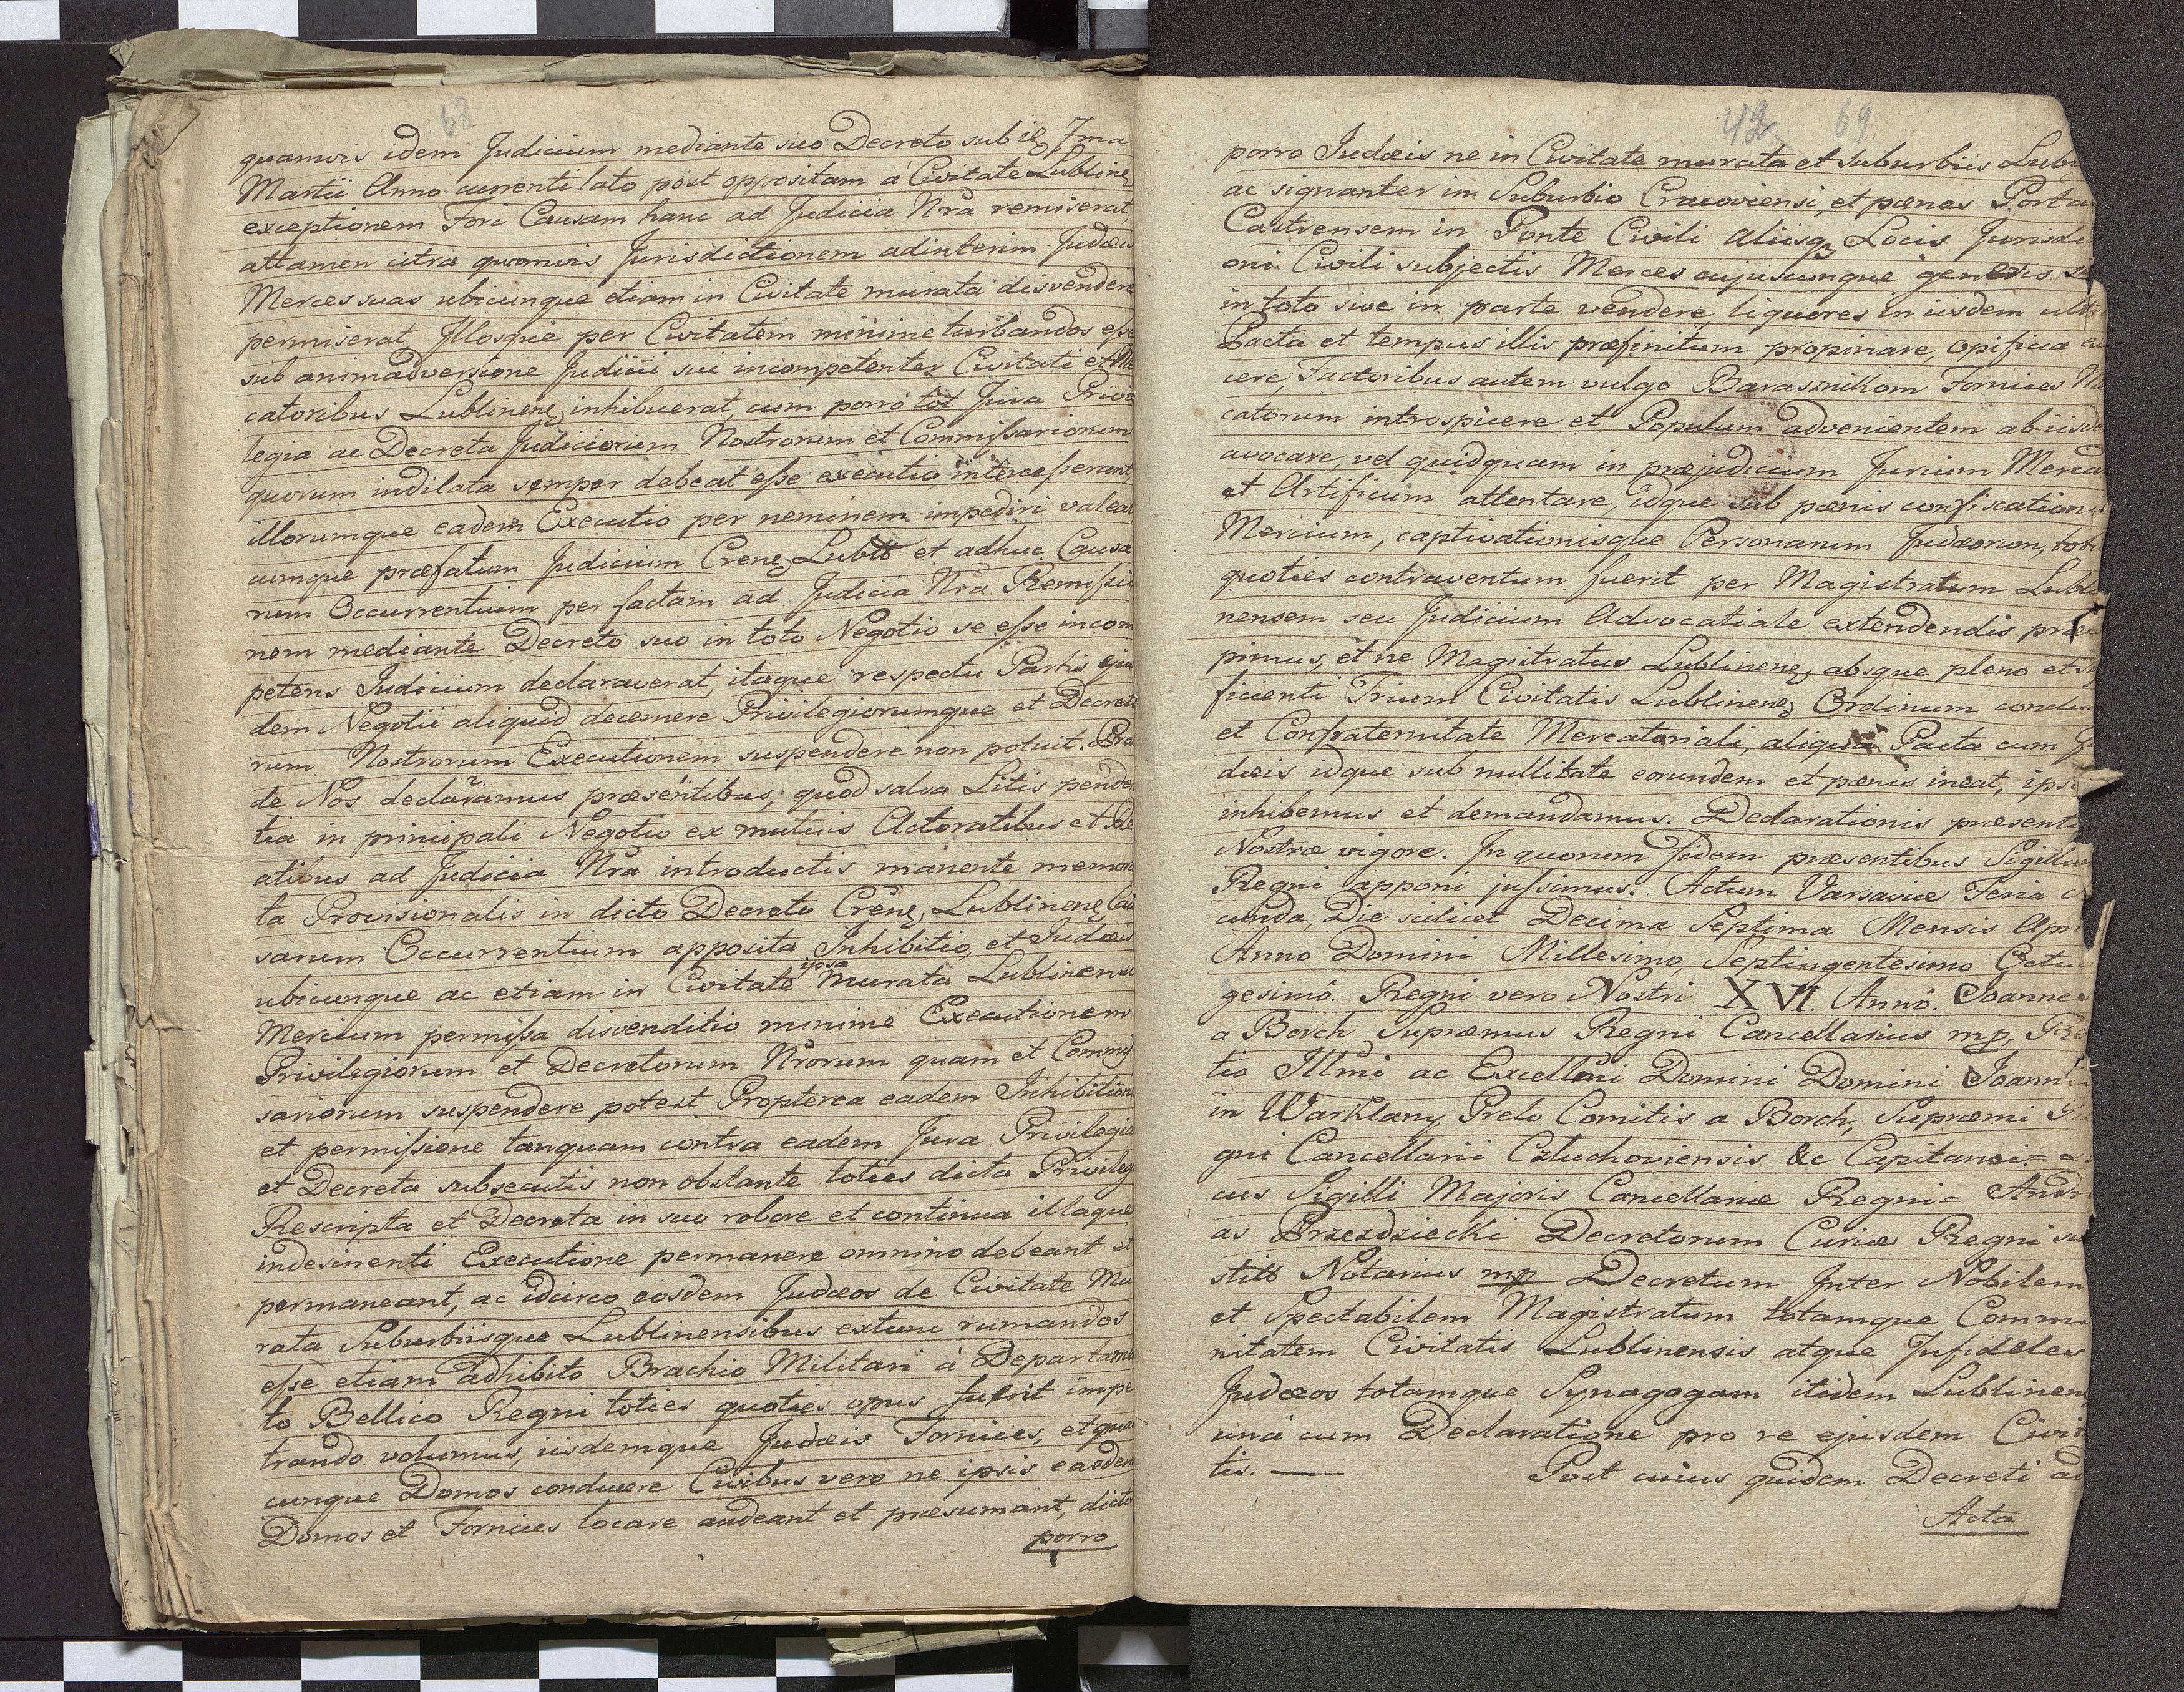 68
quamvis idem Judicium mediante suo Decreto sub die 7ma
Martii Anno currenti lato post oppositam à Civitate Lublinen
exceptionem Fori Causam hanc ad Judicia Nra remiserat
attamen citra quamvis Jurisdictionem adinterim Judæis
Merces suas ubicunque etiam in Civitate murata disvendere
permiserat, Illosque per Civitatem minime turbandos esse
sub animadversione Judicii sui incompetenter Civitati et Me
catoribus Lublinen inhibuerat, cum porro tot Jura Privi
legia ac Decreta Judiciorum Nostrorum et Commissariorum
quorum indilata semper debeat esse executio, intercesserant,
illorumque eadem Executio per neminem impediri valeat
cumque præfatum Judicium Crene Lubls et adhuc Causa
rum Occurrentium per factam ad Judicia Nra Remissio
nem mediante Decreto suo in toto Negotio se esse incom
petens Judicium declaraverat, itaque respectu Partis ejus
dem Negotii aliquid decernere Privilegiorumque et Decreto
rum Nostrorum Executionem suspendere non potuit. Pro
de Nos declaramus præsentibus, quod salva Litis penden
tia in principali Negotio ex mutuis Actoratibus et Re
atibus ad Judicia Nra introductis manente memora
ta Provisionalis in dicto Decreto Crene Lublinen Cau
sarum Occurrentium apposita Inhibitio, et Judæis
ubicunque ac etiam in Civitate ipsa Murata Lublinensi
Mercium permissa disvenditio minime Executionem
Privilegiorum et Decretorum Nrorum quam et Commis
sariorum suspendere potest Propterea eadem Inhibitione
et permissione tanquam contra eadem Jura Privilegia
et Decreta subsecutis non obstante toties dicta Privileg
Rescripta et Decreta in suo robore et continua illaque
indesinenti Executione permanere omnino debeant et
permaneant, ac idcirco eosdem Judæos de Civitate Mu
rata Suburbiisque Lublinensibus extunc rumandos
esse etiam adhibito Brachio Militari à Departame
to Bellico Regni toties quoties opus fuerit impe
trando volumus, iisdemque Judæis Fornices, et quas
cunque Domos conducere Civibus vero ne ipsis easdem
Domos et Fornices locare audeant et præsumant, dicto
porro
42 69
porro Judæis ne in Civitate murata et Suburbiis Lubl
ac signanter in Suburbio Cracoviensi, et pænes Porta
Castrensem in Ponte Civili aliisq Locis Jurisdi
oni Civili subjectis Merces cujuscumque generis s
in toto sive in parte vendere, liquores in iisdem ult
Pacta et tempus illis præfinitum propinare, opificia
cere, Factoribus autem vulgo Barasznikom Fornices Me
catorum introspicere et Populum advenientem ab iisde
avocare, vel quidquam in præjudicium Jurium Merca
et Artificum attentare, idque sub pænis confiscation
Mercium, captivationisque Personarum Judæorum, toti
quoties contraventum fuerit per Magistratum Lubl
nensem seu Judicium Advocatiale extendendis præci
pimus, et ne Magistratus Lublinene absque pleno et su
ficienti Trium Civitatis Lublinene Ordinum condic
et Confraternitate Mercatoriali, aliqua Pacta cum Ju
dæis idque sub nullitate eorundem et pænis ineat, ips
inhibemus et demandamus. Declarationis præsenti
Nostræ vigore. In quorum fidem præsentibus Sigillum
Regni apponi jussimus. Actum Varsaviæ Feria
cunda, Die scilicet Decima Septima Mensis Apri
Anno Domini Millesimo, Septingentesimo Octu
gesimo. Regni vero Nostri XVI. Anno. Joannes
a Borch Supremus Regni Cancellarius mp, Re
tio Illmi ac Excellmi Domini Domini Joann
in Warklany, Prelo Comitis a Borch, Supræmi Re
gni Cancellarii Czluchoviensis &c Capitanei =
cus Sigilli Majoris Cancellariæ Regni = Andre
as Przezdziecki Decretorum Curiæ Regni su
stits Notarius mp Decretum Inter Nobilem
et Spectabilem Magistratum totamque Commu
nitatem Civitatis Lublinensis atque Infideles
Judæos totamque Synagogam itidem Lublinen
una cum Declaratione pro re ejusdem Civi
tis. — Post cuius quidem Decreti ad
Acta